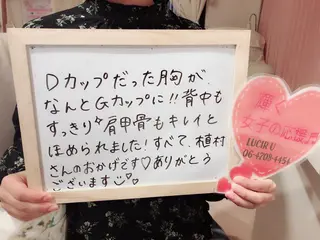 Dカップだった胸が、
なんとGカップに!!背中も
すっきり♪肩甲骨もキレイと
ほめられました!すべて、植村
さんのおかげです♡ありがとう
ございます
輝く
女子の応援
LUCIR U
06-4708-4454